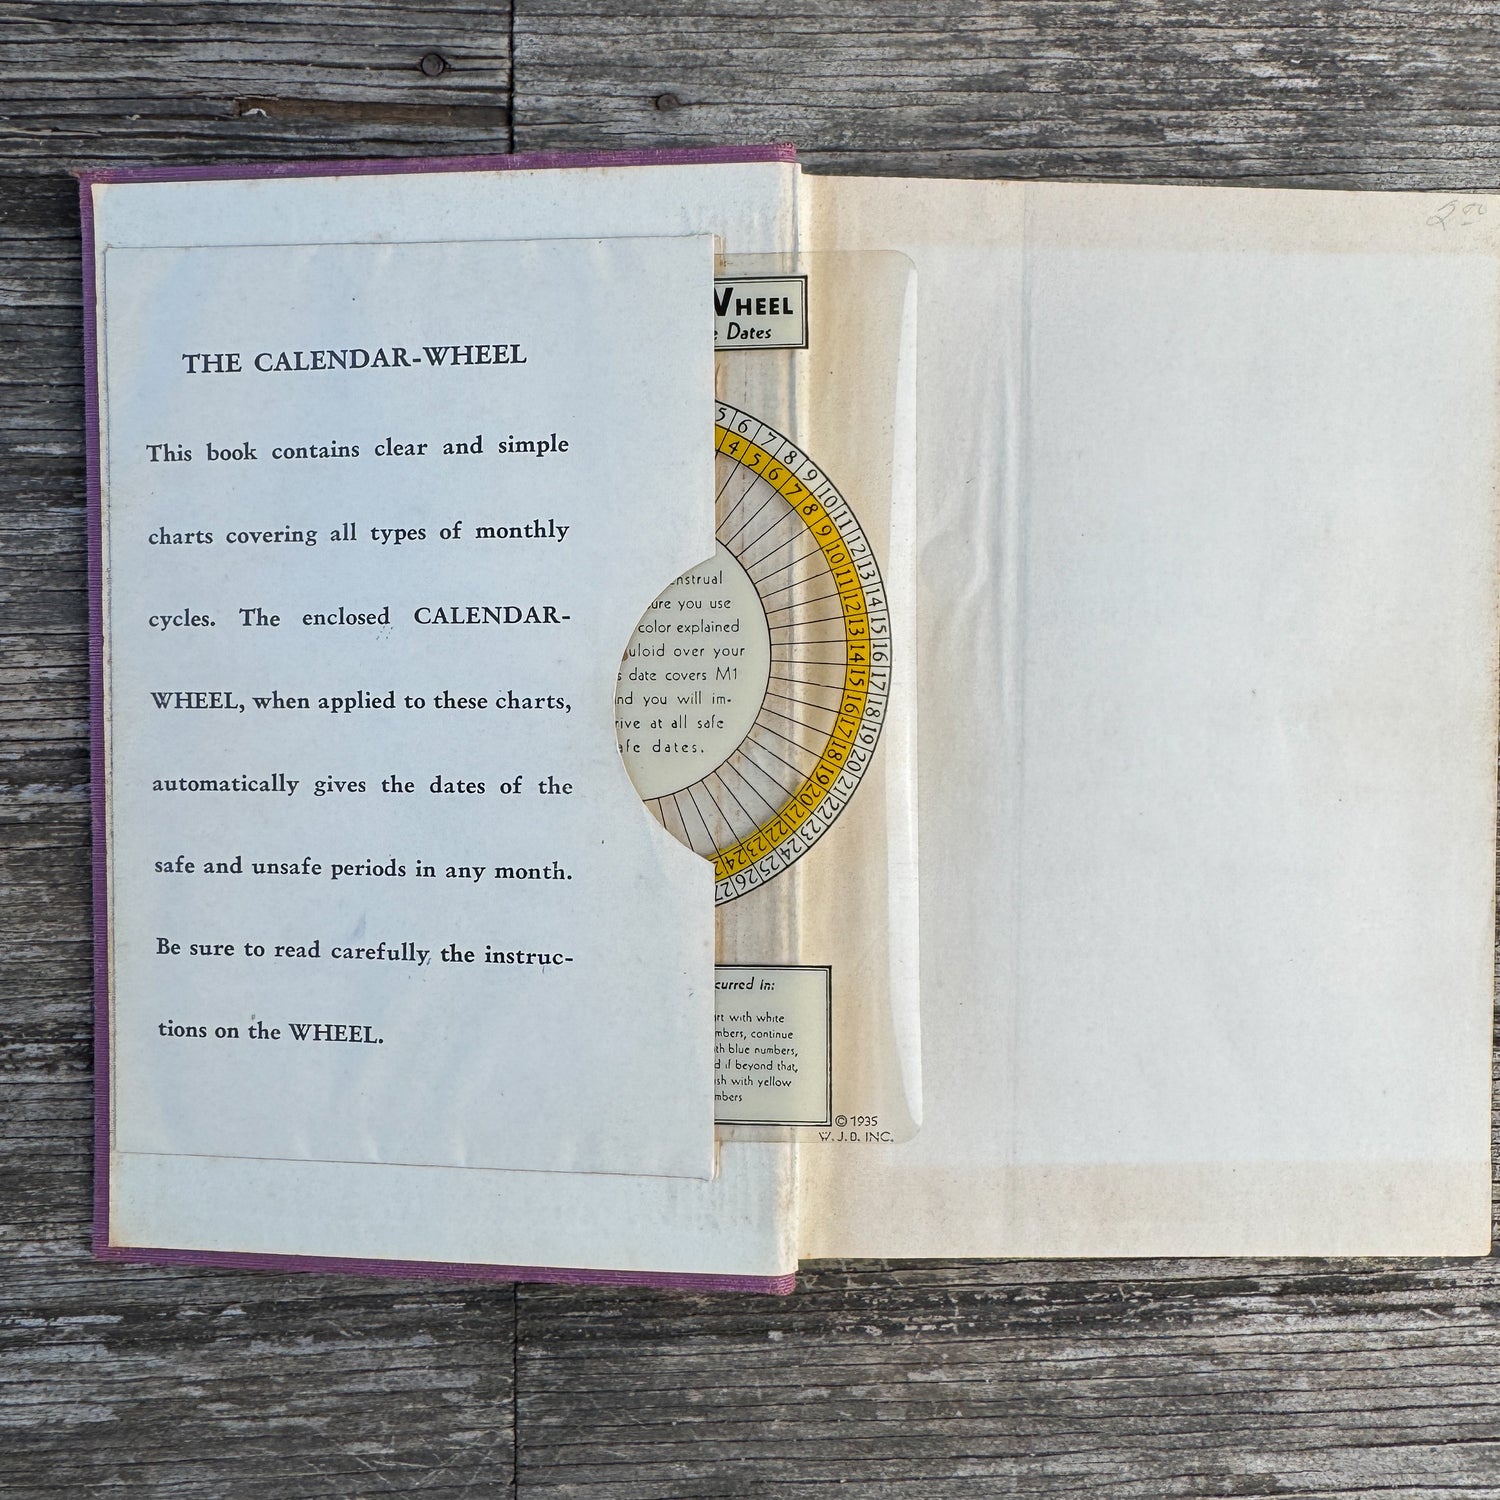 THE CALENDAR-WHEEL
This book contains clear and simple
charts covering all types of monthly
cycles. The enclosed CALENDAR-
WHEEL, when applied to these charts,
automatically gives the dates of the
safe and unsafe periods in any month.
Be sure to read carefully the instruc-
tions on the WHEEL.
WHEEL
Dates
5 6 7 8 9 10 11 12 13 14 15 16 17 18 19 20 21 22 23 24 25 26 27
4 5 6 7 8 9 10 11 12 13 14 15 16 17 18 19 20 21 22 23 24
nstrual
ure you use
color explained
uloid over your
s date covers M1
nd you will im-
rive at all safe
afe dates.
curred in:
rt with white
mbers, continue
th blue numbers,
d if beyond that,
ish with yellow
mbers
© 1935
W.J.D. INC.